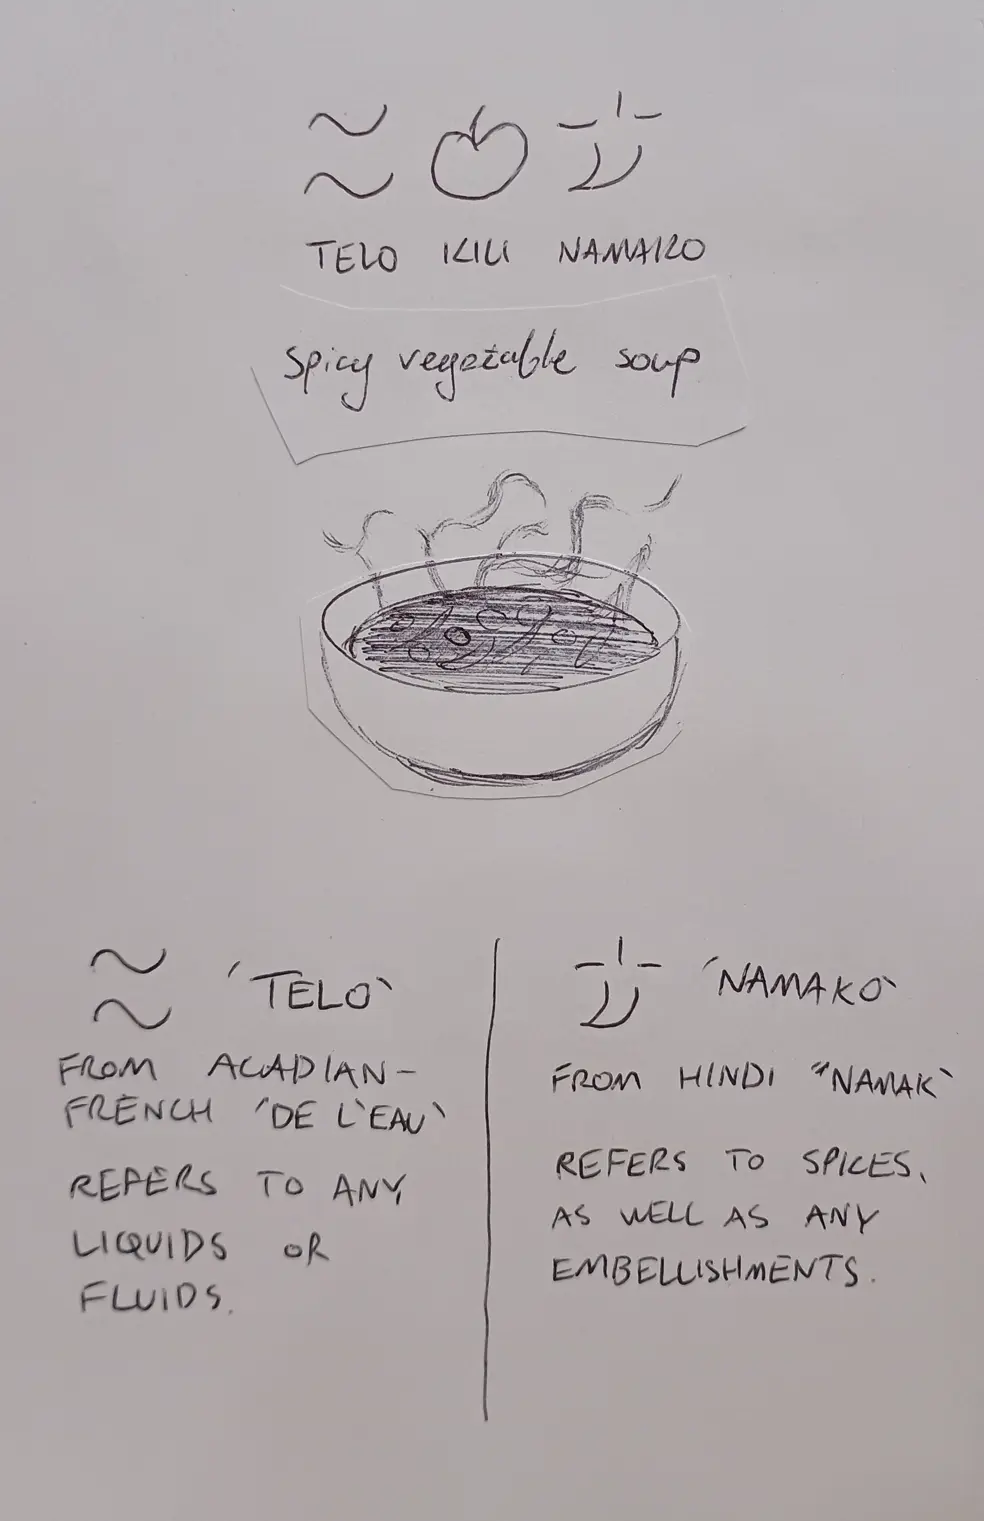 TELO KILI NAMAKO
Spicy vegetable soup
'TELO`
FROM ACADIAN-
FRENCH 'DE L'EAU`
REFERS TO ANY
LIQUIDS OR
FLUIDS.
'NAMAKO`
FROM HINDI "NAMAK`
REFERS TO SPICES,
AS WELL AS ANY
EMBELLISHMENTS.